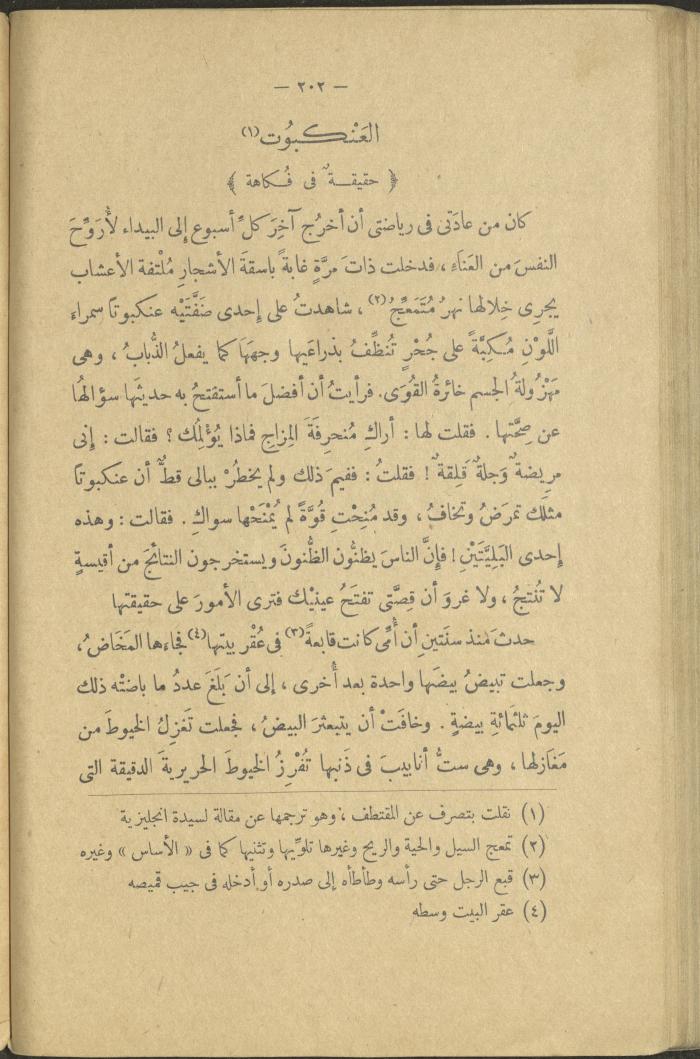 — ٢٠٢ —
العَنْكبُوت(١)
﴿ حقيقةٌ فى فُكاهة ﴾
كان من عادَتى فى رياضتى أن أخرُج آخِرَ كلِّ أسبوع إلى البيداء لأُرَوِّحَ
النفسَ من العَناءِ ، فدخلت ذاتَ مرَّةٍ غابةً باسقةَ الأشجارِ مُلْتفة الأعشاب
يجرِى خِلالها نهرٌ مُتَمَعِّجٌ(٢) ، شاهدتُ على إحدى ضَفَّتَيْه عنكبوتًا سمراءَ
اللَّوْنِ مُكِبَّةً على جُحْرٍ تُنظِّفُ بذراعَيها وجهَهَا كما يفعلُ الذُّبابُ ، وهى
مَهْزُولةُ الجسم خائرةُ القُوَى. فرأيتُ أن أفضلَ ما أستفتحُ به حديثَها سؤالهُا
عن صِحَّتها . فقلت لها : أراكِ مُنحرِفَةَ المِزاجِ فماذا يُؤْلِمُك ؟ فقالت : إنى
مريضةٌ وَجلةٌ قَلِقةٌ ! فقلتُ : ففيمَ ذلك ولم يخطُرْ ببالى قطُّ أن عنكبوتًا
مثلَك تمرَضُ وتخافُ ، وقد مُنِحْتِ قُوَّةً لم يُمْنَحْها سواكِ . فقالت : وهذه
إحدى البَلِيَّتَيْنِ ! فإنَّ الناسَ يظنُّون الظُّنونَ ويستخرجون النتائجَ من أقيسةٍ
لا تُنتجُ ، ولا غروَ أن قِصَّتى تفتَحُ عينيْك فترى الأمورَ على حقيقتها
حدثَ منذ سنَتينِ أن أُمِّى كانت قابعةً(٣) فى عُقْر بيتها(٤) فجاءها المَخَاضُ،
وجعلت تبيضُ بيضَها واحدة بعد أُخرى ، إلى أن بَلَغَ عددُ ما باضتْه ذلك
اليومَ ثلثمَائةِ بيضةٍ . وخافَتْ أن يتبعثرَ البيضُ ، فجعلت تَغزِلُ الخيوطَ من
مَغازلها ، وهى ستُّ أنابيبَ فى ذَنبها تُفْرِزُ الخيوطَ الحريريةَ الدقيقة التى
(١) نقلت بتصرف عن المقتطف ، وهو ترجمها عن مقالة لسيدة انجليزية
(٢) تمعج السيل والحية والريح وغيرها تلوّيها وتثنيها كما فى « الأساس » وغيره
(٣) قبع الرجل حتى رأسه وطأطأه إلى صدره أو أدخله فى جيب قميصه
(٤) عقر البيت وسطه